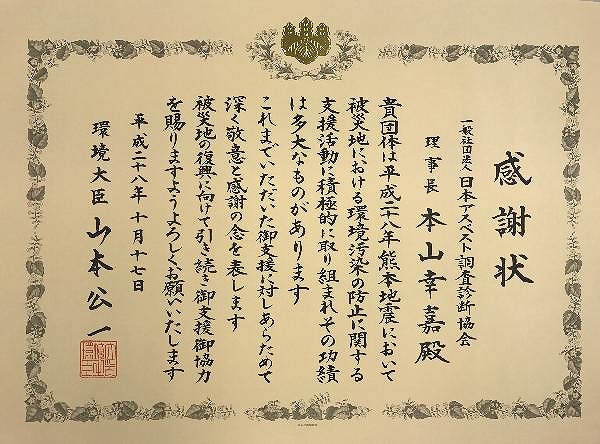 感謝状
一般社団法人日本アスベスト調査診断協会
理事長 本山幸嘉殿
貴団体は平成二十八年熊本地震において
被災地における環境汚染の防止に関する
支援活動に積極的に取り組まれその功績
は多大なものがあります
これまでいただいた御支援に対しあらためて
深く敬意と感謝の念を表します
被災地の復興に向けて引き続き御支援御協力
を賜りますようよろしくお願いいたします
平成二十八年十月十七日
環境大臣 山本公一